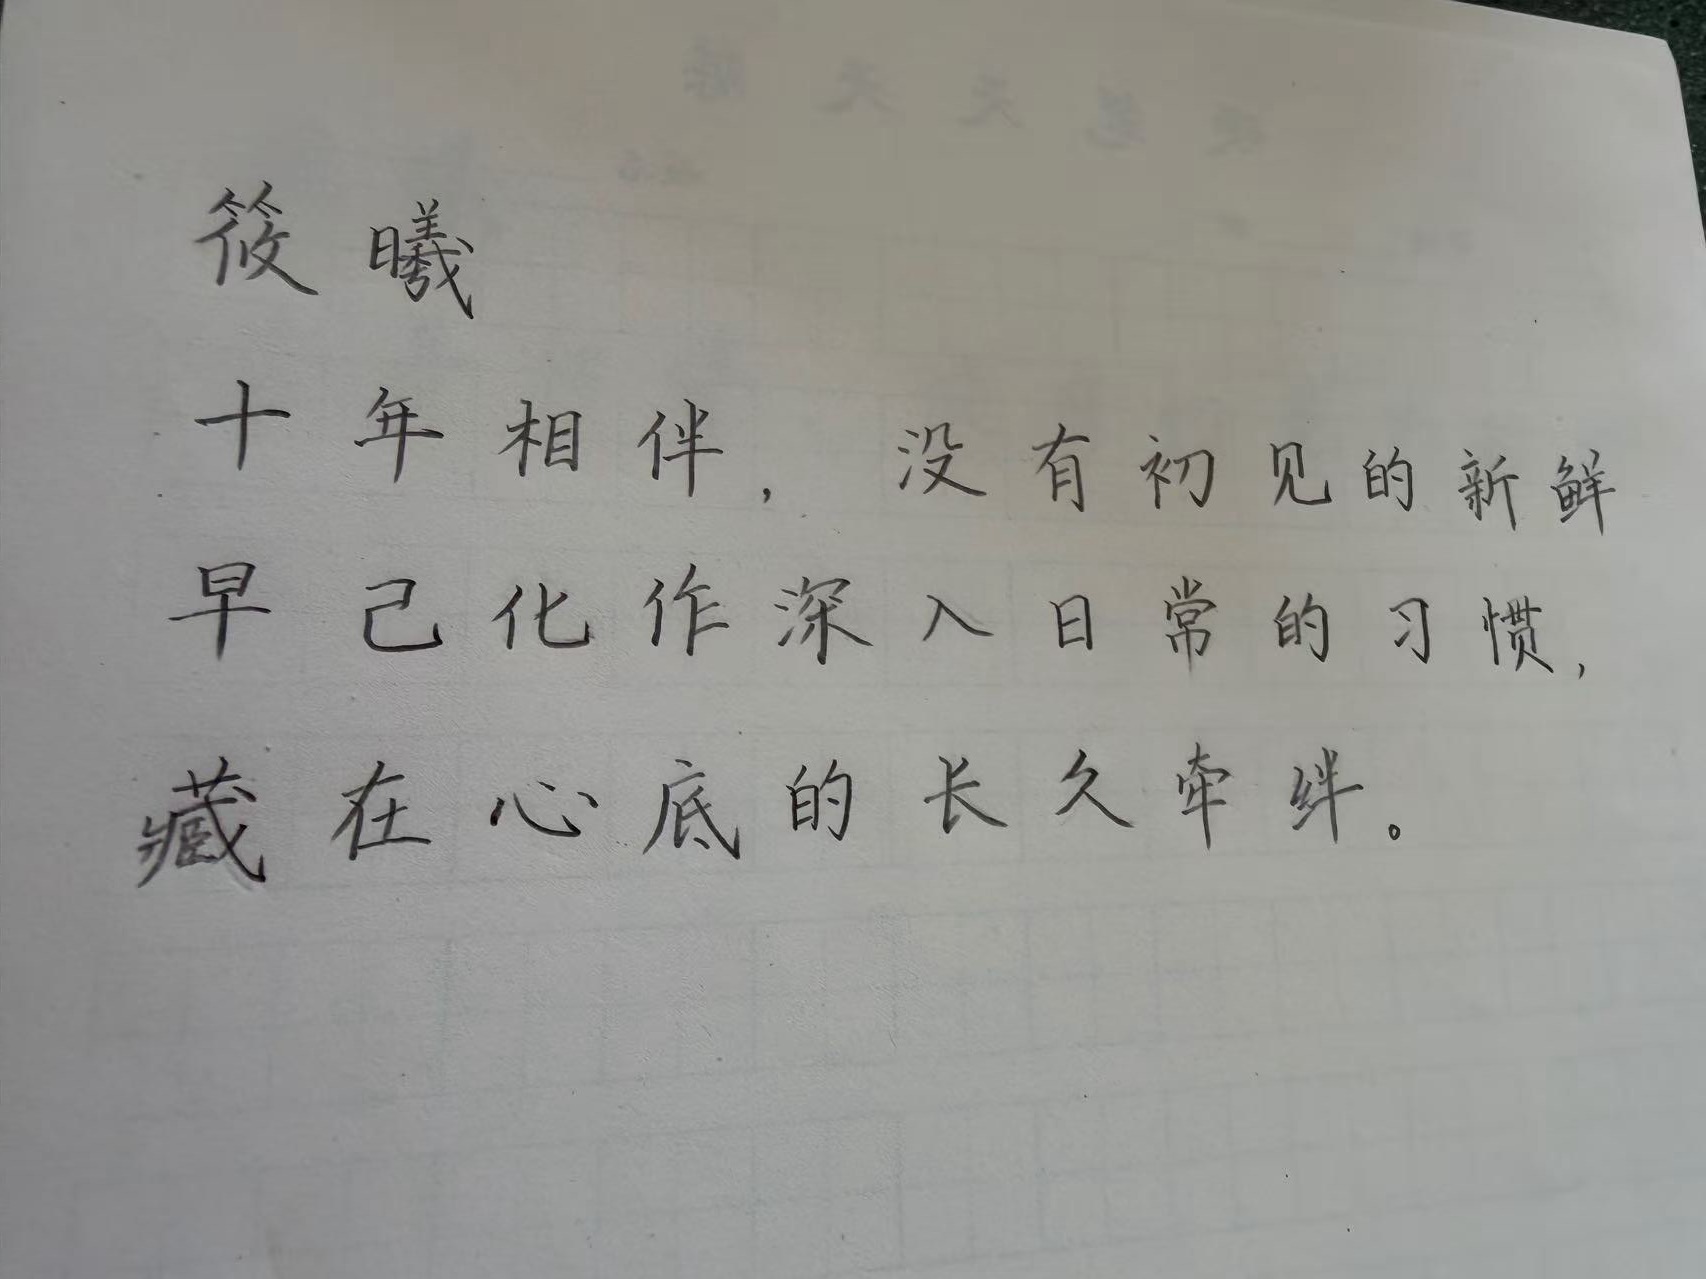 筱曦
十年相伴，没有初见的新鲜
早己化作深入日常的习惯，
藏在心底的长久牵绊。